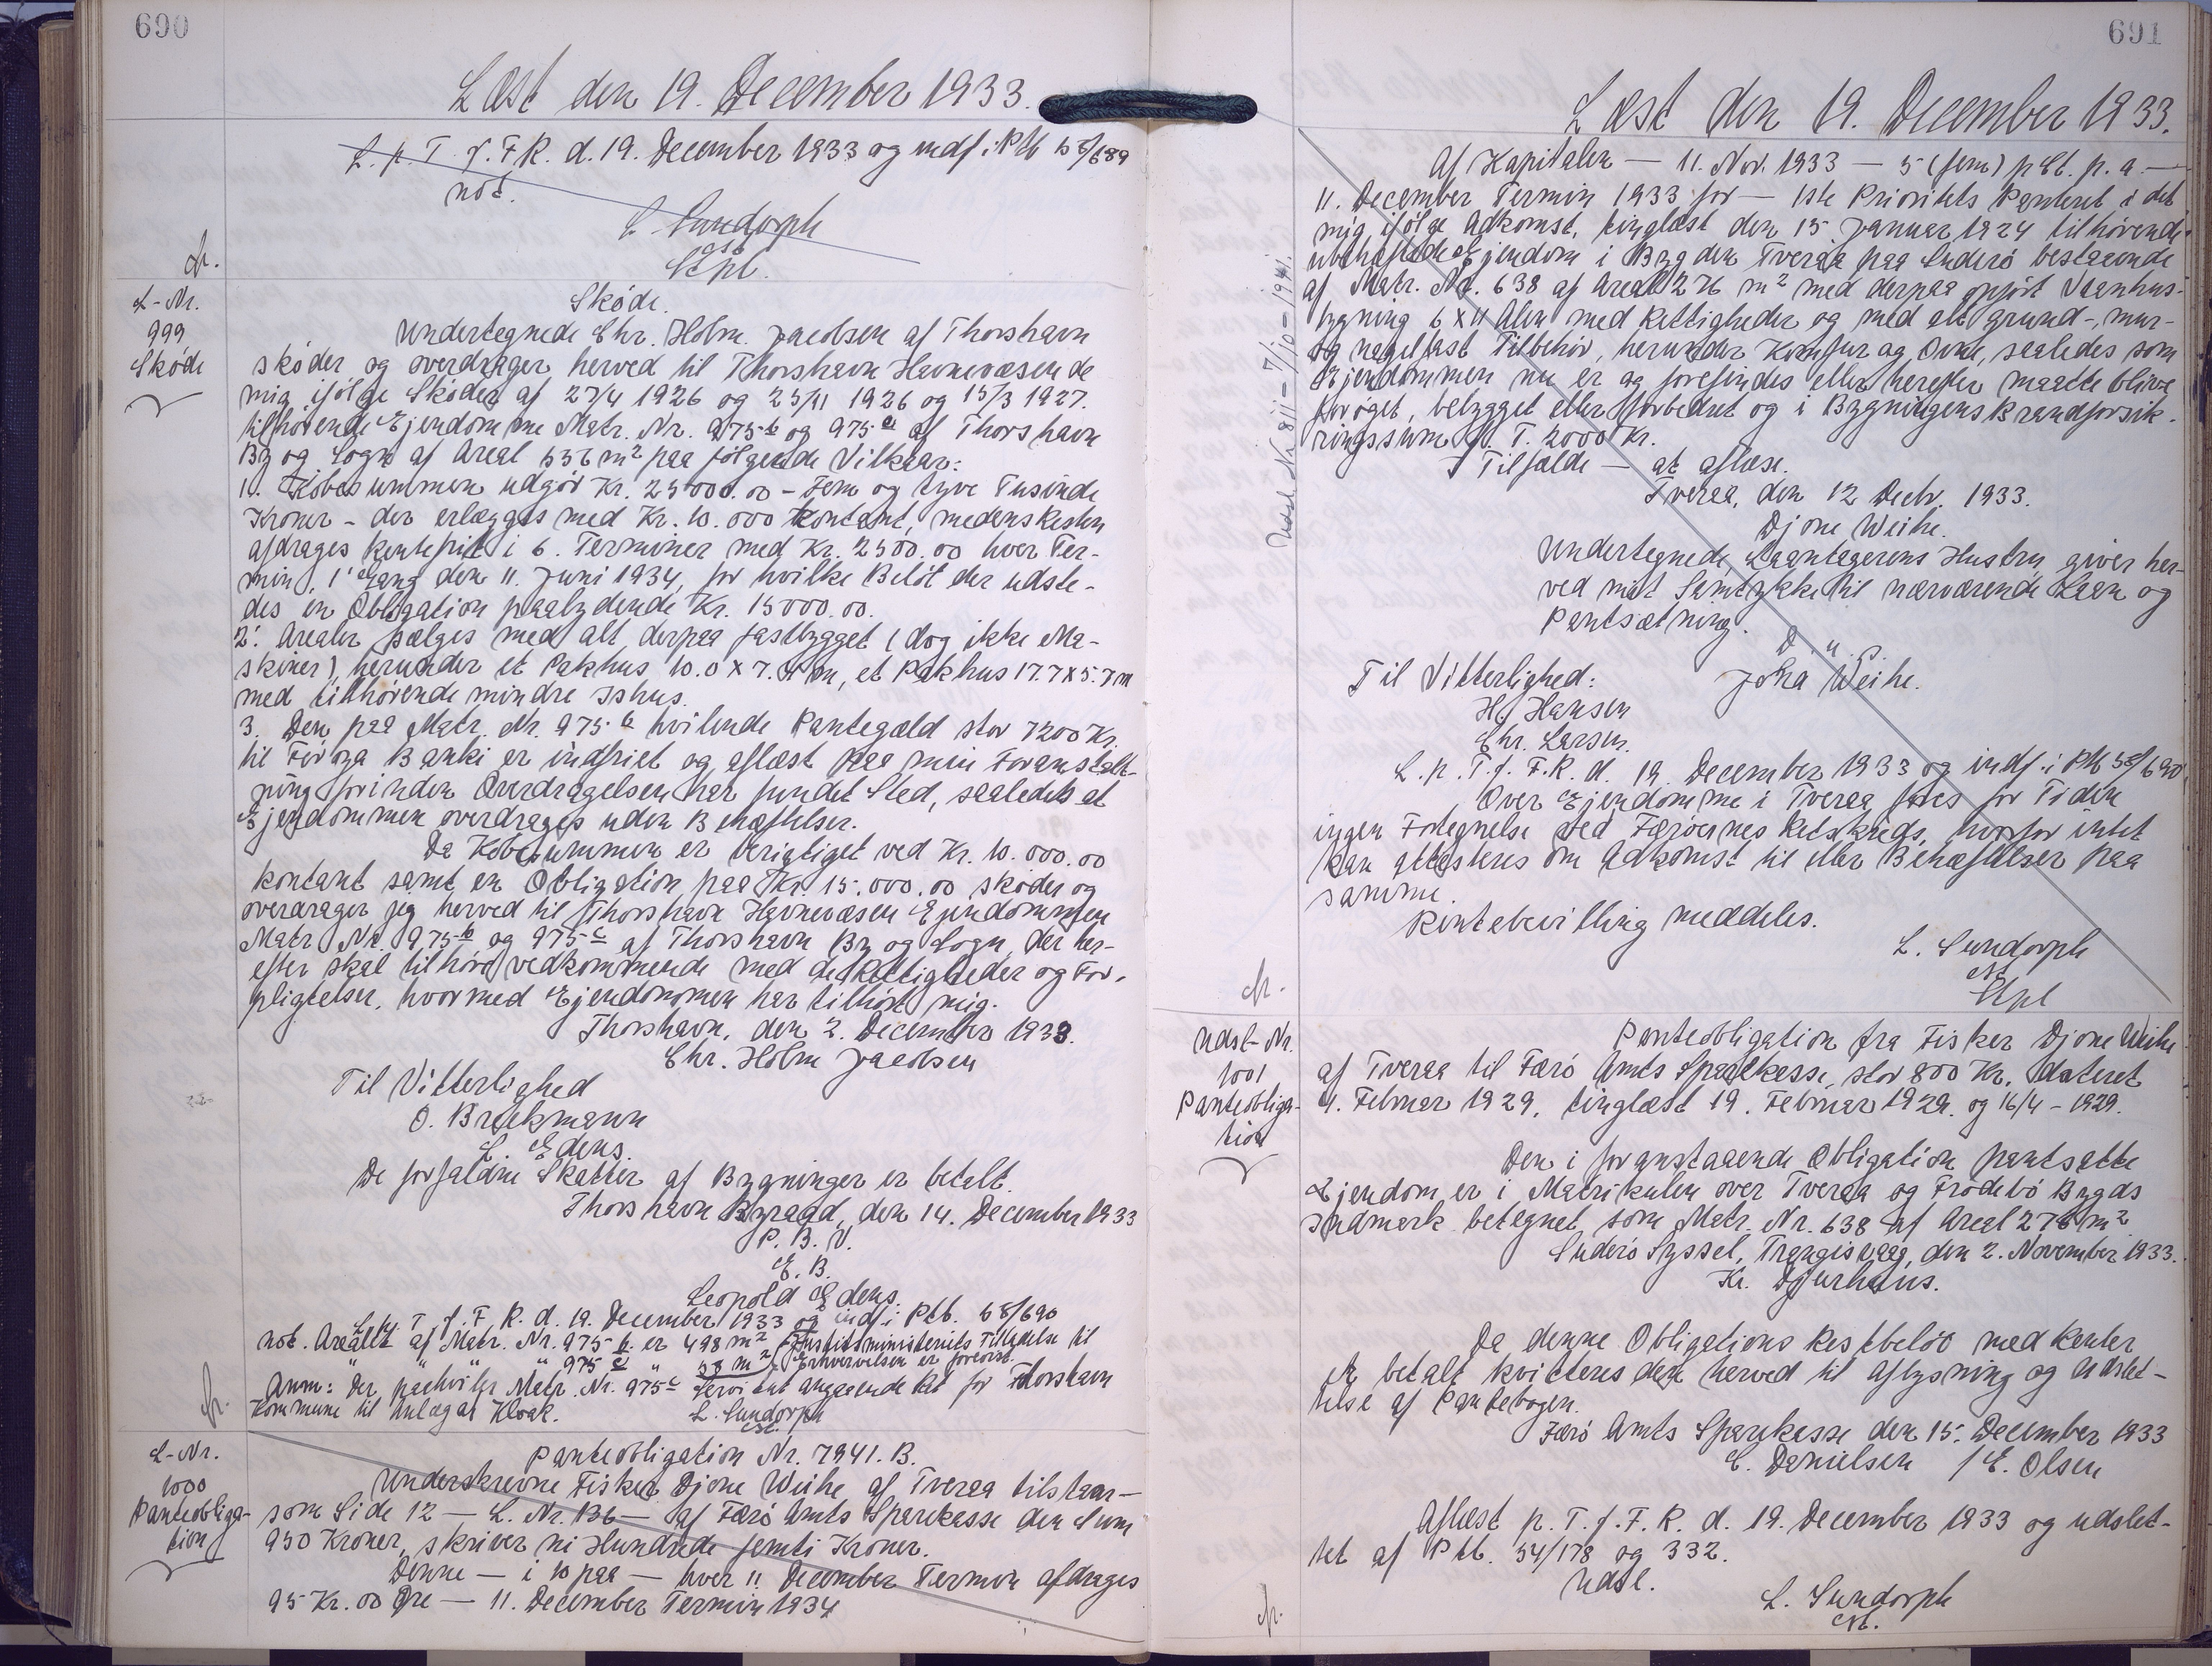 690
Læst den 19. December 1933.
L. p. T. f. F. R. d. 19. December 1933 og indf. i Ptb 58/689
not.
L. Sundorph
cst.
Stpl.
L-Nr.
999
Sköde
Sköde.
Undertegnede Chr. Holm Jacobsen af Thorshavn
sköder og overdrager herved til Thorshavn Havnevæsen de
mig ifölge Sköder af 27/4 1926 og 25/11 1926 og 15/3 1927.
tilhörende Ejendomme Matr. Nr. 975 b og 975 c af Thorshavn
By og Sogn af Areal 556 m² paa fölgende Vilkaar:
1. Köbesummen udgör Kr. 25000.00 - Fem og tyve Tusinde
Kroner - der erlægges med Kr. 10.000 kontant, medens Resten
afdrages rentefrit i 6. Terminer med Kr. 2500.00 hver Ter-
min, 1' Gang den 11. Juni 1934, for hvilke Belöb der udste-
des en Obligation paalydende Kr. 15000.00.
2. Arealer sælges med alt derpaa fastbygget (dog ikke Ma-
skiner), herunder et Pakhus 10.0 x 7.4 m, et Pakhus 17.7 x 5.7 m
med tilhörende mindre Ishus.
3. Den paa Matr. Nr. 975 b hvilende Pantegæld stor 7200 Kr.
til Föroya Banki er indfriet og aflæst paa min Foranstalt-
ning forinden Overdragelsen har fundet Sted, saaledes at
Ejendommen overdrages uden Behæftelser.
Da Köbesummen er berigtiget ved Kr. 10.000.00
kontant samt en Obligation paa Kr. 15.000.00 sköder og
overdrager jeg herved til Thorshavn Havnevæsen Ejendommen
Matr. Nr. 975 b og 975 c af Thorshavn By og Sogn, der her-
efter skal tilhöre vedkommende med de Rettigheder og For-
pligtelser, hvormed Ejendommen har tilhört mig.
Thorshavn, den 2. December 1933.
Chr. Holm Jacobsen
Til Vitterlighed
O. Brekmann
L. Edens.
De forfaldne Skatter af Bygninger er betalt.
Thorshavn Byraad, den 14. December 1933
P. B. V.
E. B.
Leopold Edens.
L. p. T. f. F. R. d. 19. December 1933 og indf. i Ptb. 58/690
not. Arealet af Matr. Nr. 975 b. er 498 m² Justitsministeriets Tilladelse til
" " " " 975 c " 58 m² Erhvervelsen er forevist.
Anm: Der paahviler Matr. Nr. 975 c Servitut angaaende Ret for Thorshavn
Kommune til Anlæg af Kloak.
L. Sundorph
cst.
L-Nr.
1000
Panteobliga-
tion
Panteobligation Nr. 7941. B.
Underskrevne Fisker Djone Weihe af Tveraa tilstaar —
som Side 12 — L. Nr. 136 — af Færö Amts Sparekasse den Sum
950 Kroner, skriver ni Hundrede femti Kroner.
Denne — i 10 paa — hver 11. December Termin afdrages
95 Kr. 00 Öre — 11. December Termin 1934
691
Læst den 19. December 1933.
Af Kapitalen — 11. Nov. 1933 — 5 (fem) pCt. p. a. —
11. December Termin 1933 for — 1ste Prioritets Panteret i det
mig ifölge Adkomst, tinglæst den 15 Januar 1924 tilhörende
ubehæftede Ejendom i Bygden Tveraa paa Suderö bestaaende
af Matr. Nr. 638 af Areal 276 m² med derpaa opfört Vaanhus-
bygning 6 x 11 Alen med Rettigheder og med alt grund-, mur-
og nagelfast Tilbehör, herunder Komfur og Ovne, saaledes som
Ejendommen nu er og forefindes eller herefter maatte blive
foröget, bebygget eller forbedret og i Bygningens Brandforsik-
ringssum p. T. 2000 Kr.
I Tilfælde — at aflæse.
Tveraa, den 12 Decbr. 1933.
Djone Weihe.
Undertegnede Laantagerens Hustru giver her-
ved mit Samtykke til nærværende Laan og
Pantsætning.
D. u. s.
Til Vitterlighed: Joha Weihe.
H. Hansen
Chr. Larsen.
L. p. T. f. F. R. d. 19. December 1933 og indf. i Ptb 58/690
Over Ejendomme i Tveraa föres for Tiden
ingen Fortegnelse ved Færöernes Retskreds, hvorfor intet
kan attesteres om Adkomst til eller Behæftelser paa
samme.
Rentebevilling meddeles.
L. Sundorph
cst.
Stpl
Udsl. Nr. 811 - 7/10 - 1941.
Udsl-Nr.
1001
Panteobliga-
tion
Panteobligation fra Fisker Djone Weihe
af Tveraa til Færö Amts Sparekasse, stor 800 Kr. dateret
4. Februar 1929, tinglæst 19. Februar 1929. og 16/4 - 1929.
Den i foranstaaende Obligation pantsatte
Ejendom er i Matrikulen over Tveraa og Frodebö Bygds
Indmark betegnet som Matr. Nr. 638 af Areal 276 m²
Suderö Syssel, Trangisvaag, den 2. November 1933.
Kr. Djurhuus.
Da denne Obligations Restbelöb med Renter
er betalt kvitteres den herved til Aflysning og Udslet-
telse af Pantebogen.
Færö Amts Sparekasse den 15. December 1933
C. Danielsen / E. Olsen
Aflæst p. T. f. F. R. d. 19. December 1933 og udslet-
tet af Ptb. 54/178 og 332.
Udsl.
L. Sundorph
cst.